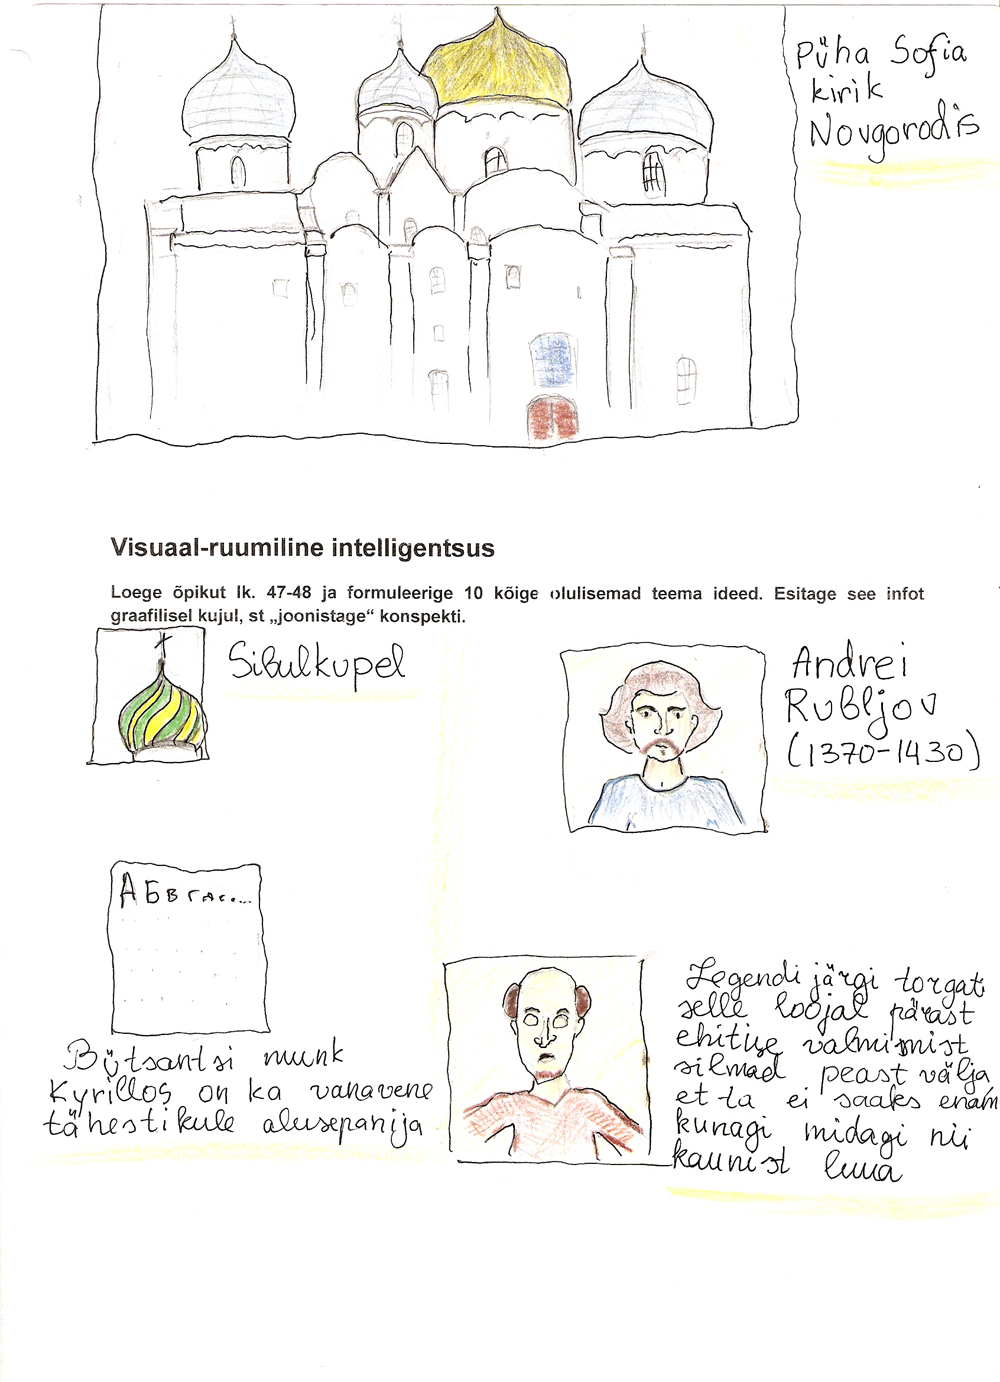 Püha Sofia
kirik
Novgorodis
Visuaal-ruumiline intelligentsus
Loege õpikut lk. 47-48 ja formuleerige 10 kõige olulisemad teema ideed. Esitage see infot
graafilisel kujul, st „joonistage“ konspekti.
Sibulkupel
Andrei
Rubljov
(1370-1430)
А Б В Г Д Е ...
Bütsantsi munk
Kyrillos on ka vanavene
tähestikule alusepanija
Legendi järgi torgati
selle loojal pärast
ehitise valmimist
silmad peast välja
et ta ei saaks enam
kunagi midagi nii
kaunist luua